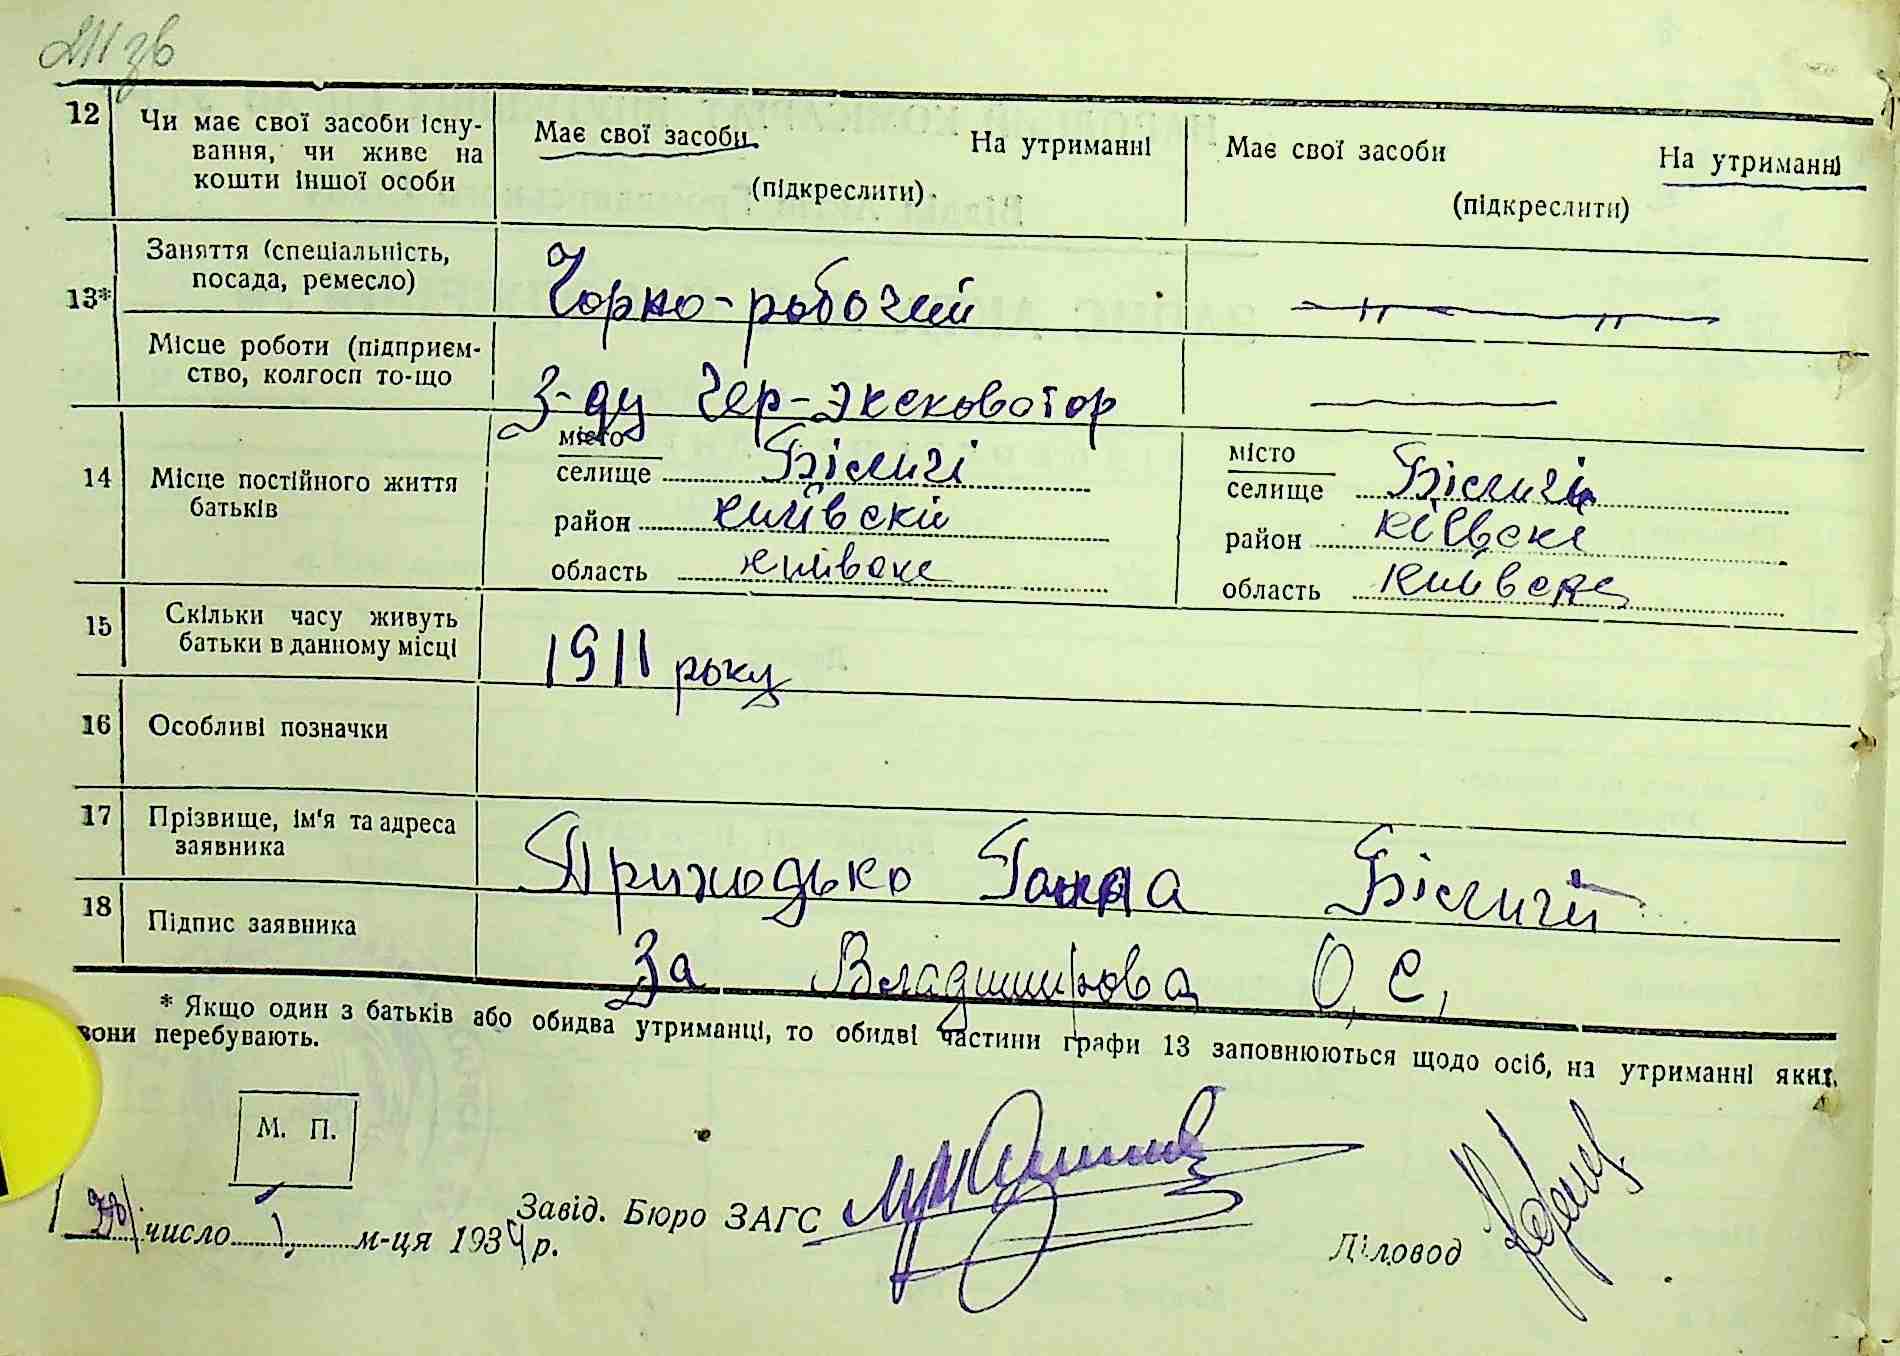 12 Чи має свої засоби існу-
вання, чи живе на
кошти іншої особи
Має свої засоби На утриманні
(підкреслити)
Має свої засоби На утриманні
(підкреслити)
13*
Заняття (спеціальність,
посада, ремесло)
Чорно-робочий
Місце роботи (підприєм-
ство, колгосп то-що
З-ду Чер-эксковатор
14 Місце постійного життя
батьків
місто
селище Біличі
район київскій
область київске
місто
селище Біличі
район київскі
область київске
15 Скільки часу живуть
батьки в данному місці
1911 року
16 Особливі позначки
17 Прізвище, ім'я та адреса
заявника
Приходько Ганна Біличі
18 Підпис заявника
За Владимирова О, С,
* Якщо один з батьків або обидва утриманці, то обидві частини графи 13 заповнюються щодо осіб, на утриманні яких
вони перебувають.
М. П.
число 1 м-ця 1934 р.
Завід. Бюро ЗАГС
Діловод